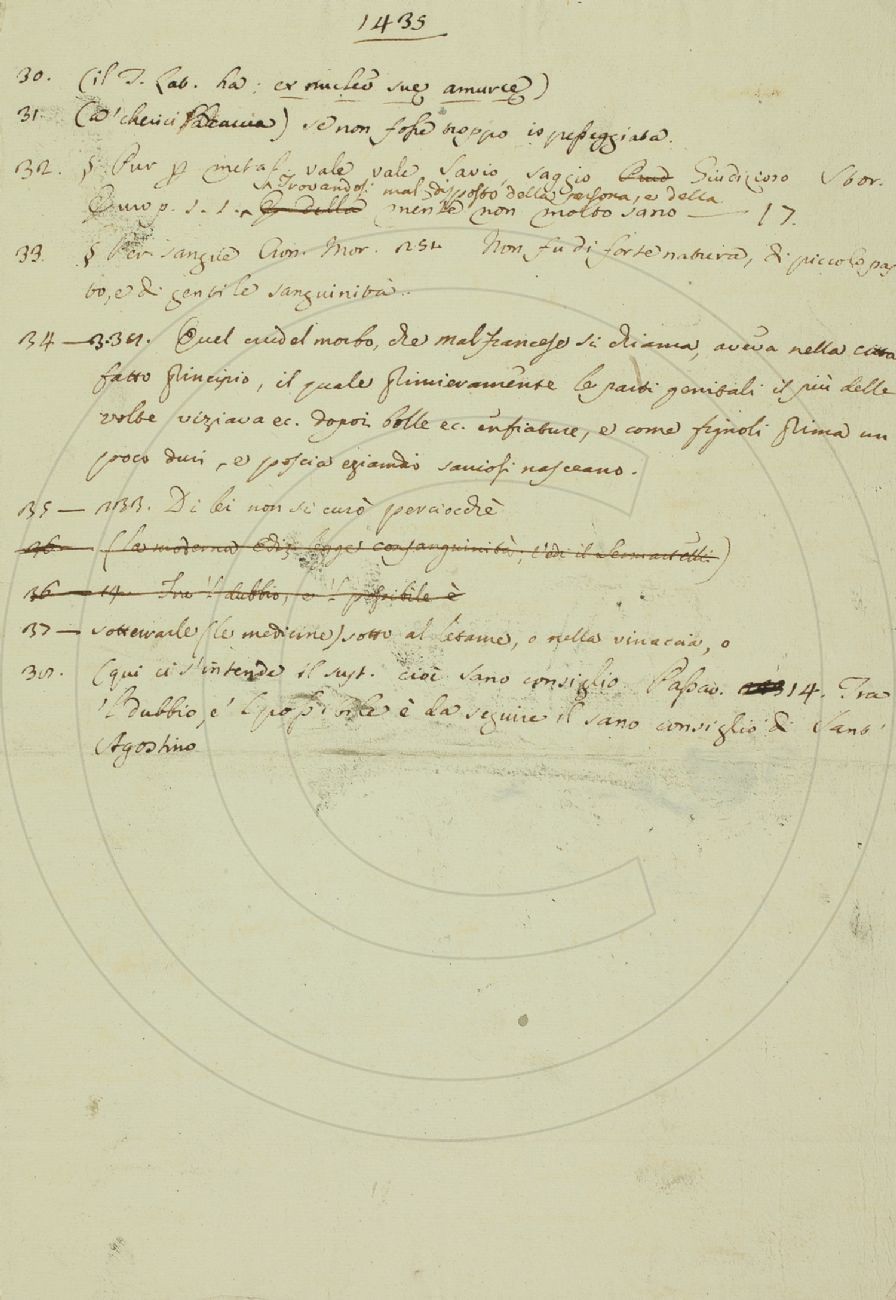 1435
30. (il T. Lat. ha: ex nucleo sue amurce)
31. (a' cherici ) se non fosse troppo io passeggiata.
32. § Pur p metaf. vale vale Savio, saggio Giudizioso Stor.
Trovandosi mal disposto della persona, e della
Europ. 1. 1. E della mente non molto sano — 17.
33. § Per sangue Cron. Mor. 251. Non fu di forte natura, di piccolo pas
to, e di gentile sanguinità.
34 — 331. Quel crudel morbo, che mal francese si chiama, aveva nella città
fatto principio, il quale primieramente le parti genitali il più delle
volte viziava ec. dopoi bolle ec. enfiature, e come fignoli prima un
poco duri, e poscia eziandio saniosi nasceano.
35 — 233. Di lei non si curò perciocchè
36 — (la moderna Ediz. legge consanguinità,
36 — 14. Tra 'l dubbio, e 'l possibile è
37 — sotterrarle (le medicine) sotto al letame, o nella vinaccia, o
38. (qui ci s'intende il sust. cioè sano consiglio Passav. 314. Tra
'l dubbio, e 'l possibile è da seguire il sano consiglio di Sant'
Agostino